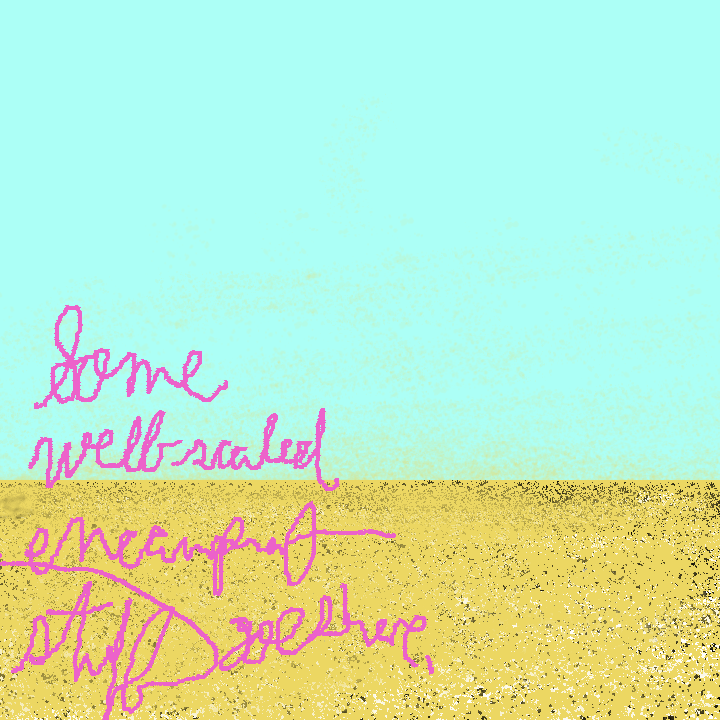 Some
well-scaled
encampment
stuff goes here.